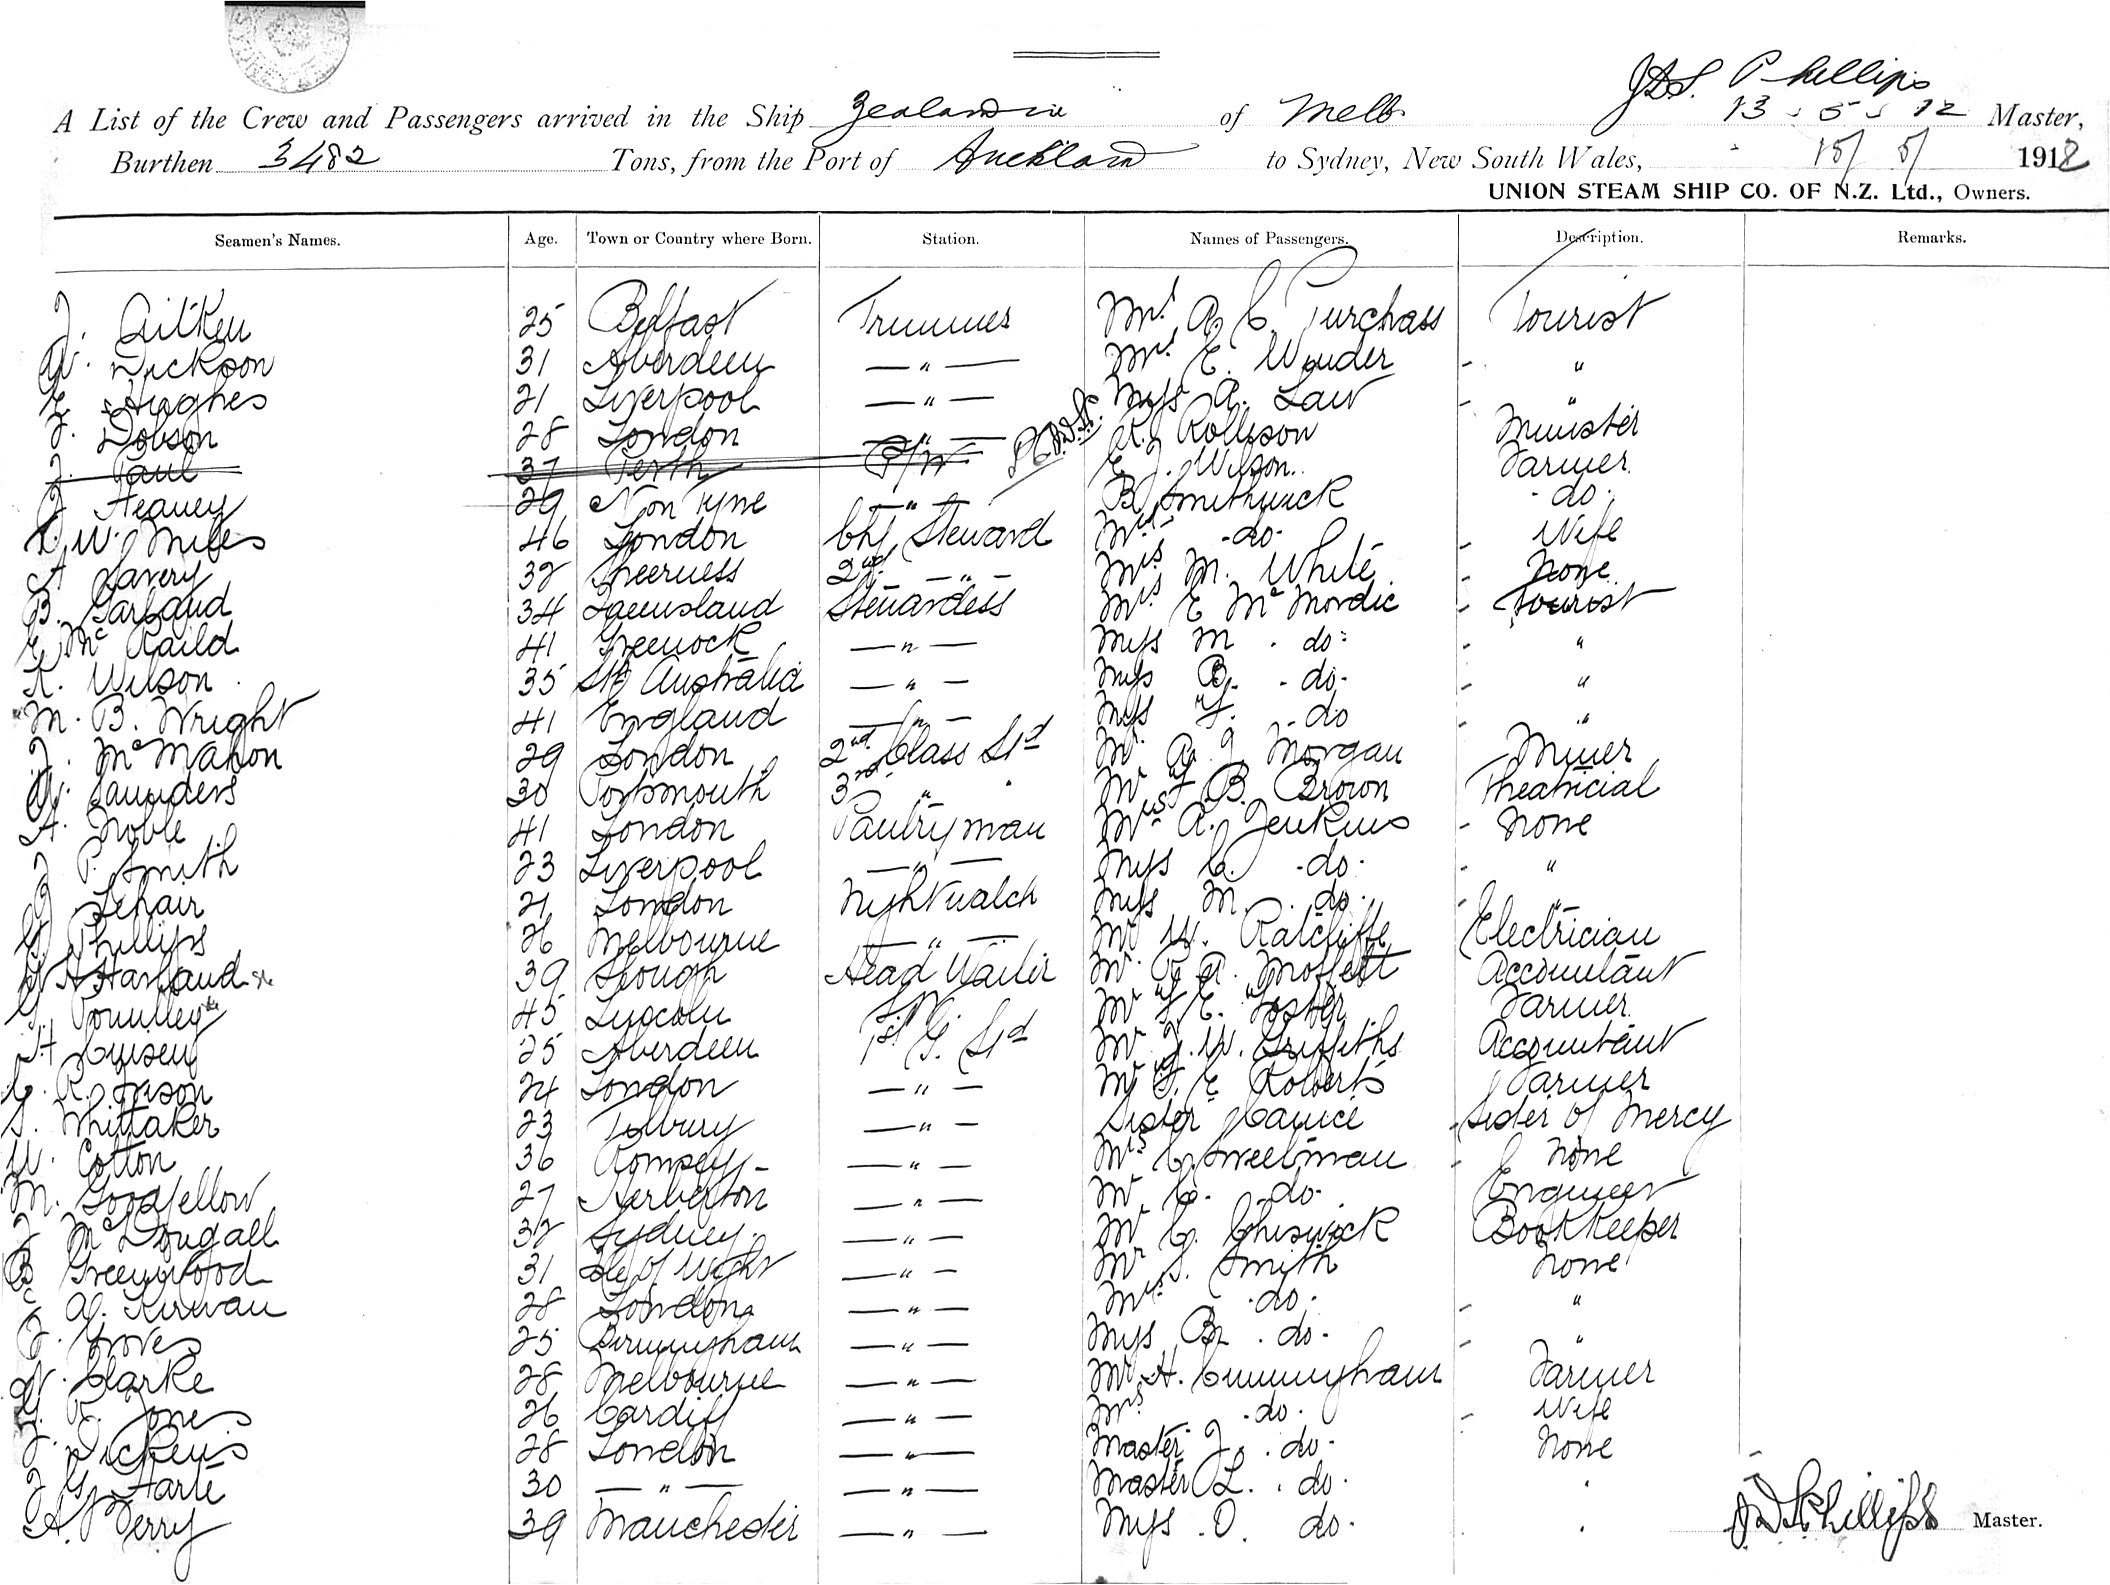 J.D.S. Phillips
A List of the Crew and Passengers arrived in the Ship Zealandia of Melb. 13-5-12 Master,
Burthen 3482 Tons, from the Port of Auckland to Sydney, New South Wales, 18/5/ 1912
UNION STEAM SHIP CO. OF N.Z. Ltd., Owners.
Seamen's Names. Age. Town or Country where Born. Station. Names of Passengers. Description. Remarks.
J. Aitken 25 Belfast Trimmer Mrs A. C. Purchass Tourist
W. Dickson 31 Aberdeen — " — Mrs E. Wonder - "
E. Hughes 21 Liverpool — " — Miss A. Law - "
J. Dobson 28 London — " — R. J. Rollison Minister
J. Paul 37 Perth E. J. Wilson. Farmer.
J. Heaney 29 N on Tyne — " — B. Smithwick - do -
W. Miles 46 London Chf Steward Mrs - do - - Wife
A. Lavery 32 Sheerness 2nd — " — Mrs M. White - None
B. Garland 34 Queensland Stewardess Mrs E McMordie - Tourist
E. McCaild 41 Greenock — " — Miss M - do - - "
K. Wilson 35 Sth Australia — " — Miss B. - do - - "
M. B. Wright 41 England — " — Miss F. - do - "
J. McMahon 29 London 2nd Class Std Mr A. J. Morgan Miner
W. Saunders 30 Portsmouth 3rd " Mr F B. Brown Theatricial
A. Noble 41 London Pantryman Mrs A. Jenkins - None
J. P. Smith 23 Liverpool — " — Miss C. - do - - "
J Lehair 21 London Nightwatch Miss M. - do - - "
Phillips 26 Melbourne — " — Mr W. Ratcliffe Electrician
Harland 39 Slough Head Waiter Mr R. A. Moffett Accountant
45 Lincoln Mr F. E. Foster Farmer.
H 25 Aberdeen 1st G. Std Mr J. W. Griffiths Accountant
C. R. 24 London — " — Mr F. E Roberts Farmer
S. Whittaker 23 Tilbury — " — Sister - Sister of Mercy
W. Cotton 36 Romsey - — " — Mrs C. Sweetman - None
M. Goodfellow 27 Herberton — " — Mr C. - do - Engineer
J McDougall 32 Sydney. — " — Mr C. Chiswick Bookkeeper
B Greenwood 31 Isle of Wight — " — Mr S. Smith None
W. Kirwan 28 London — " — Mrs - do - - "
J. Groves 25 Birmingham — " — Miss B. - do - - "
W. Clarke 28 Melbourne — " — Mr H. Cunningham Farmer
R. Jones 26 Cardiff — " — Mrs - do - - Wife
J. Dickens 28 London — " — Master J. - do - None
J G. Harte 30 — " — — " — Master L. - do -
A. Berry 39 Manchester — " — Miss O. do -
J D S Phillips Master.